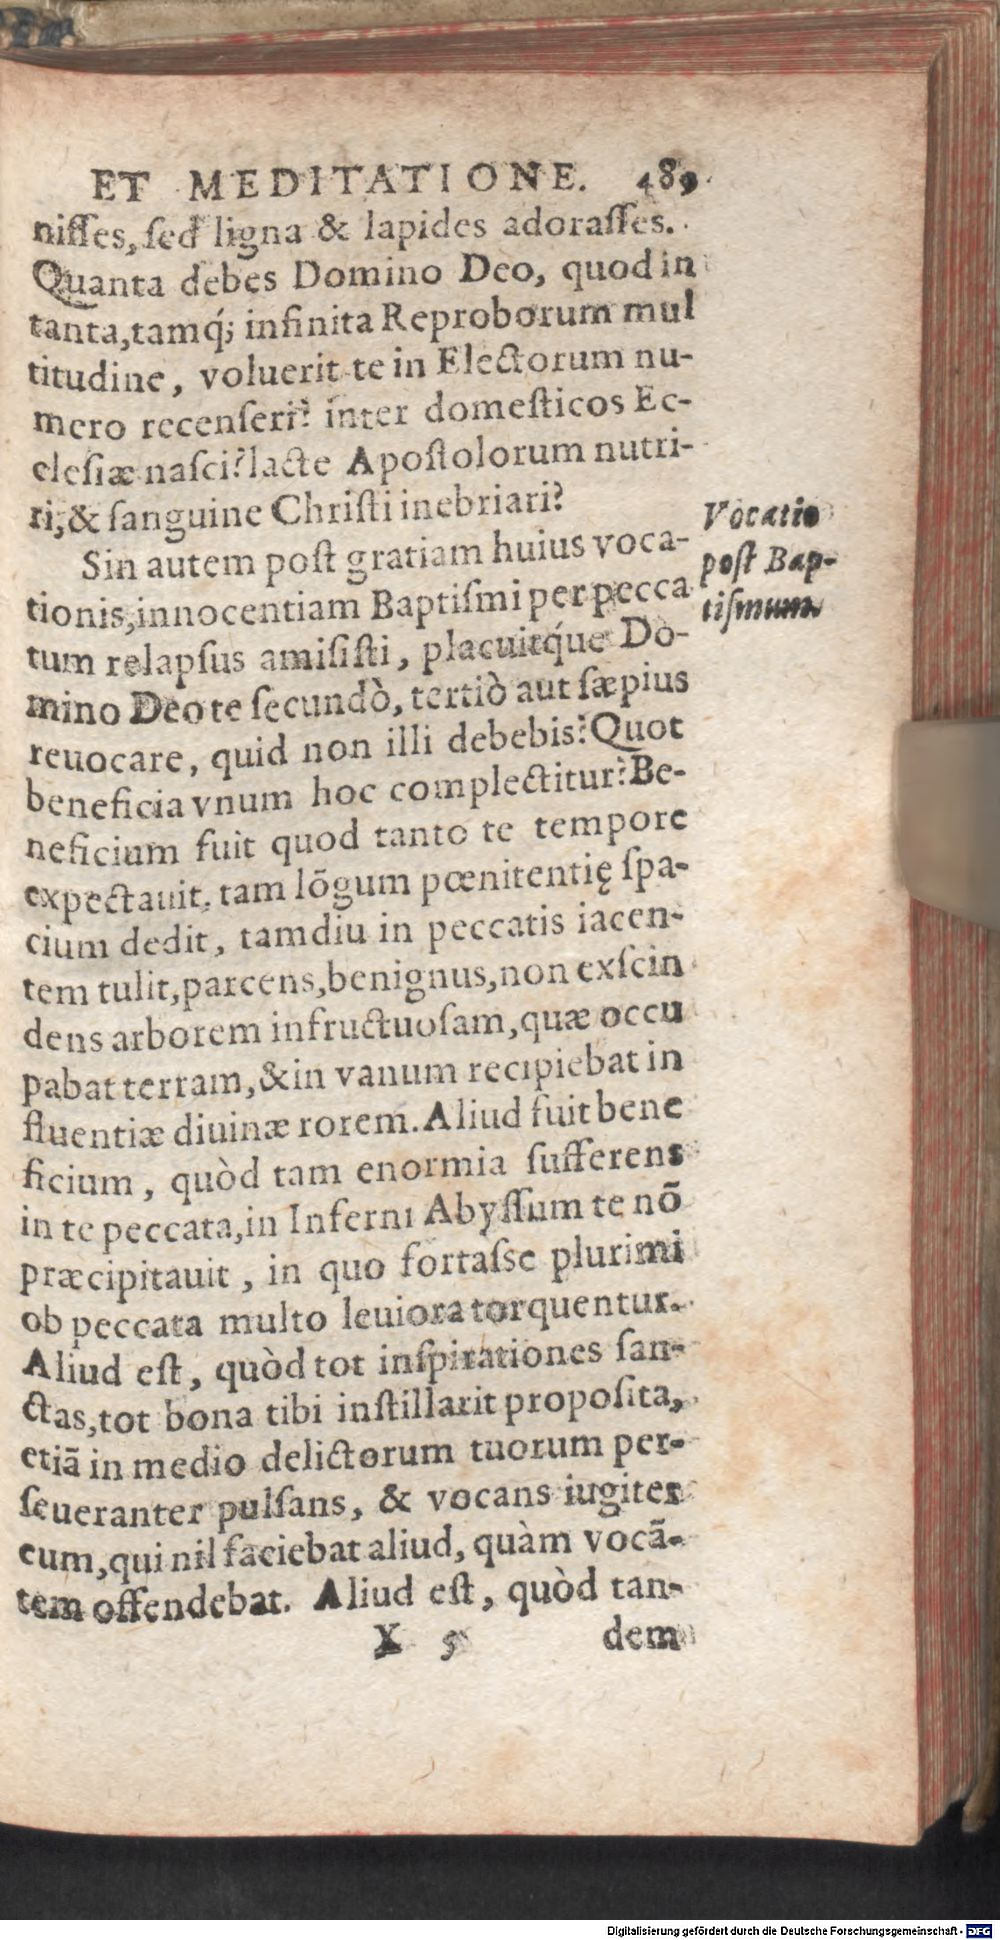 ET MEDITATIONE. 489
nisses, sed ligna & lapides adorasses.
Quanta debes Domino Deo, quod in
tanta, tamq́; infinita Reproborum mul
titudine, voluerit te in Electorum nu-
mero recenseri? inter domesticos Ec-
clesiæ nasci? lacte Apostolorum nutri-
ri, & sanguine Christi inebriari?
Sin autem post gratiam huius voca-
tionis, innocentiam Baptismi per pecca
tum relapsus amisisti, placuitq́ue Do-
mino Deo te secundò, tertiò aut sæpius
reuocare, quid non illi debebis? Quot
beneficia vnum hoc complectitur? Be-
neficium fuit quod tanto te tempore
expectauit, tam lõgum pœnitentię spa-
cium dedit, tamdiu in peccatis iacen-
tem tulit, parcens, benignus, non exscin
dens arborem infructuosam, quæ occu
pabat terram, & in vanum recipiebat in
fluentiæ diuinæ rorem. Aliud fuit bene
ficium, quòd tam enormia sufferens
in te peccata, in Inferni Abyssum te nõ
præcipitauit, in quo fortasse plurimi
ob peccata multo leuiora torquentur.
Aliud est, quòd tot inspirationes san-
ctas, tot bona tibi instillarit proposita,
etiã in medio delictorum tuorum per-
seueranter pulsans, & vocans iugiter
eum, qui nil faciebat aliud, quàm vocã-
tem offendebat. Aliud est, quòd tan-
X 5 dem
Vocatio
post Bap-
tismum
Digitalisierung gefördert durch die Deutsche Forschungsgemeinschaft - DFG